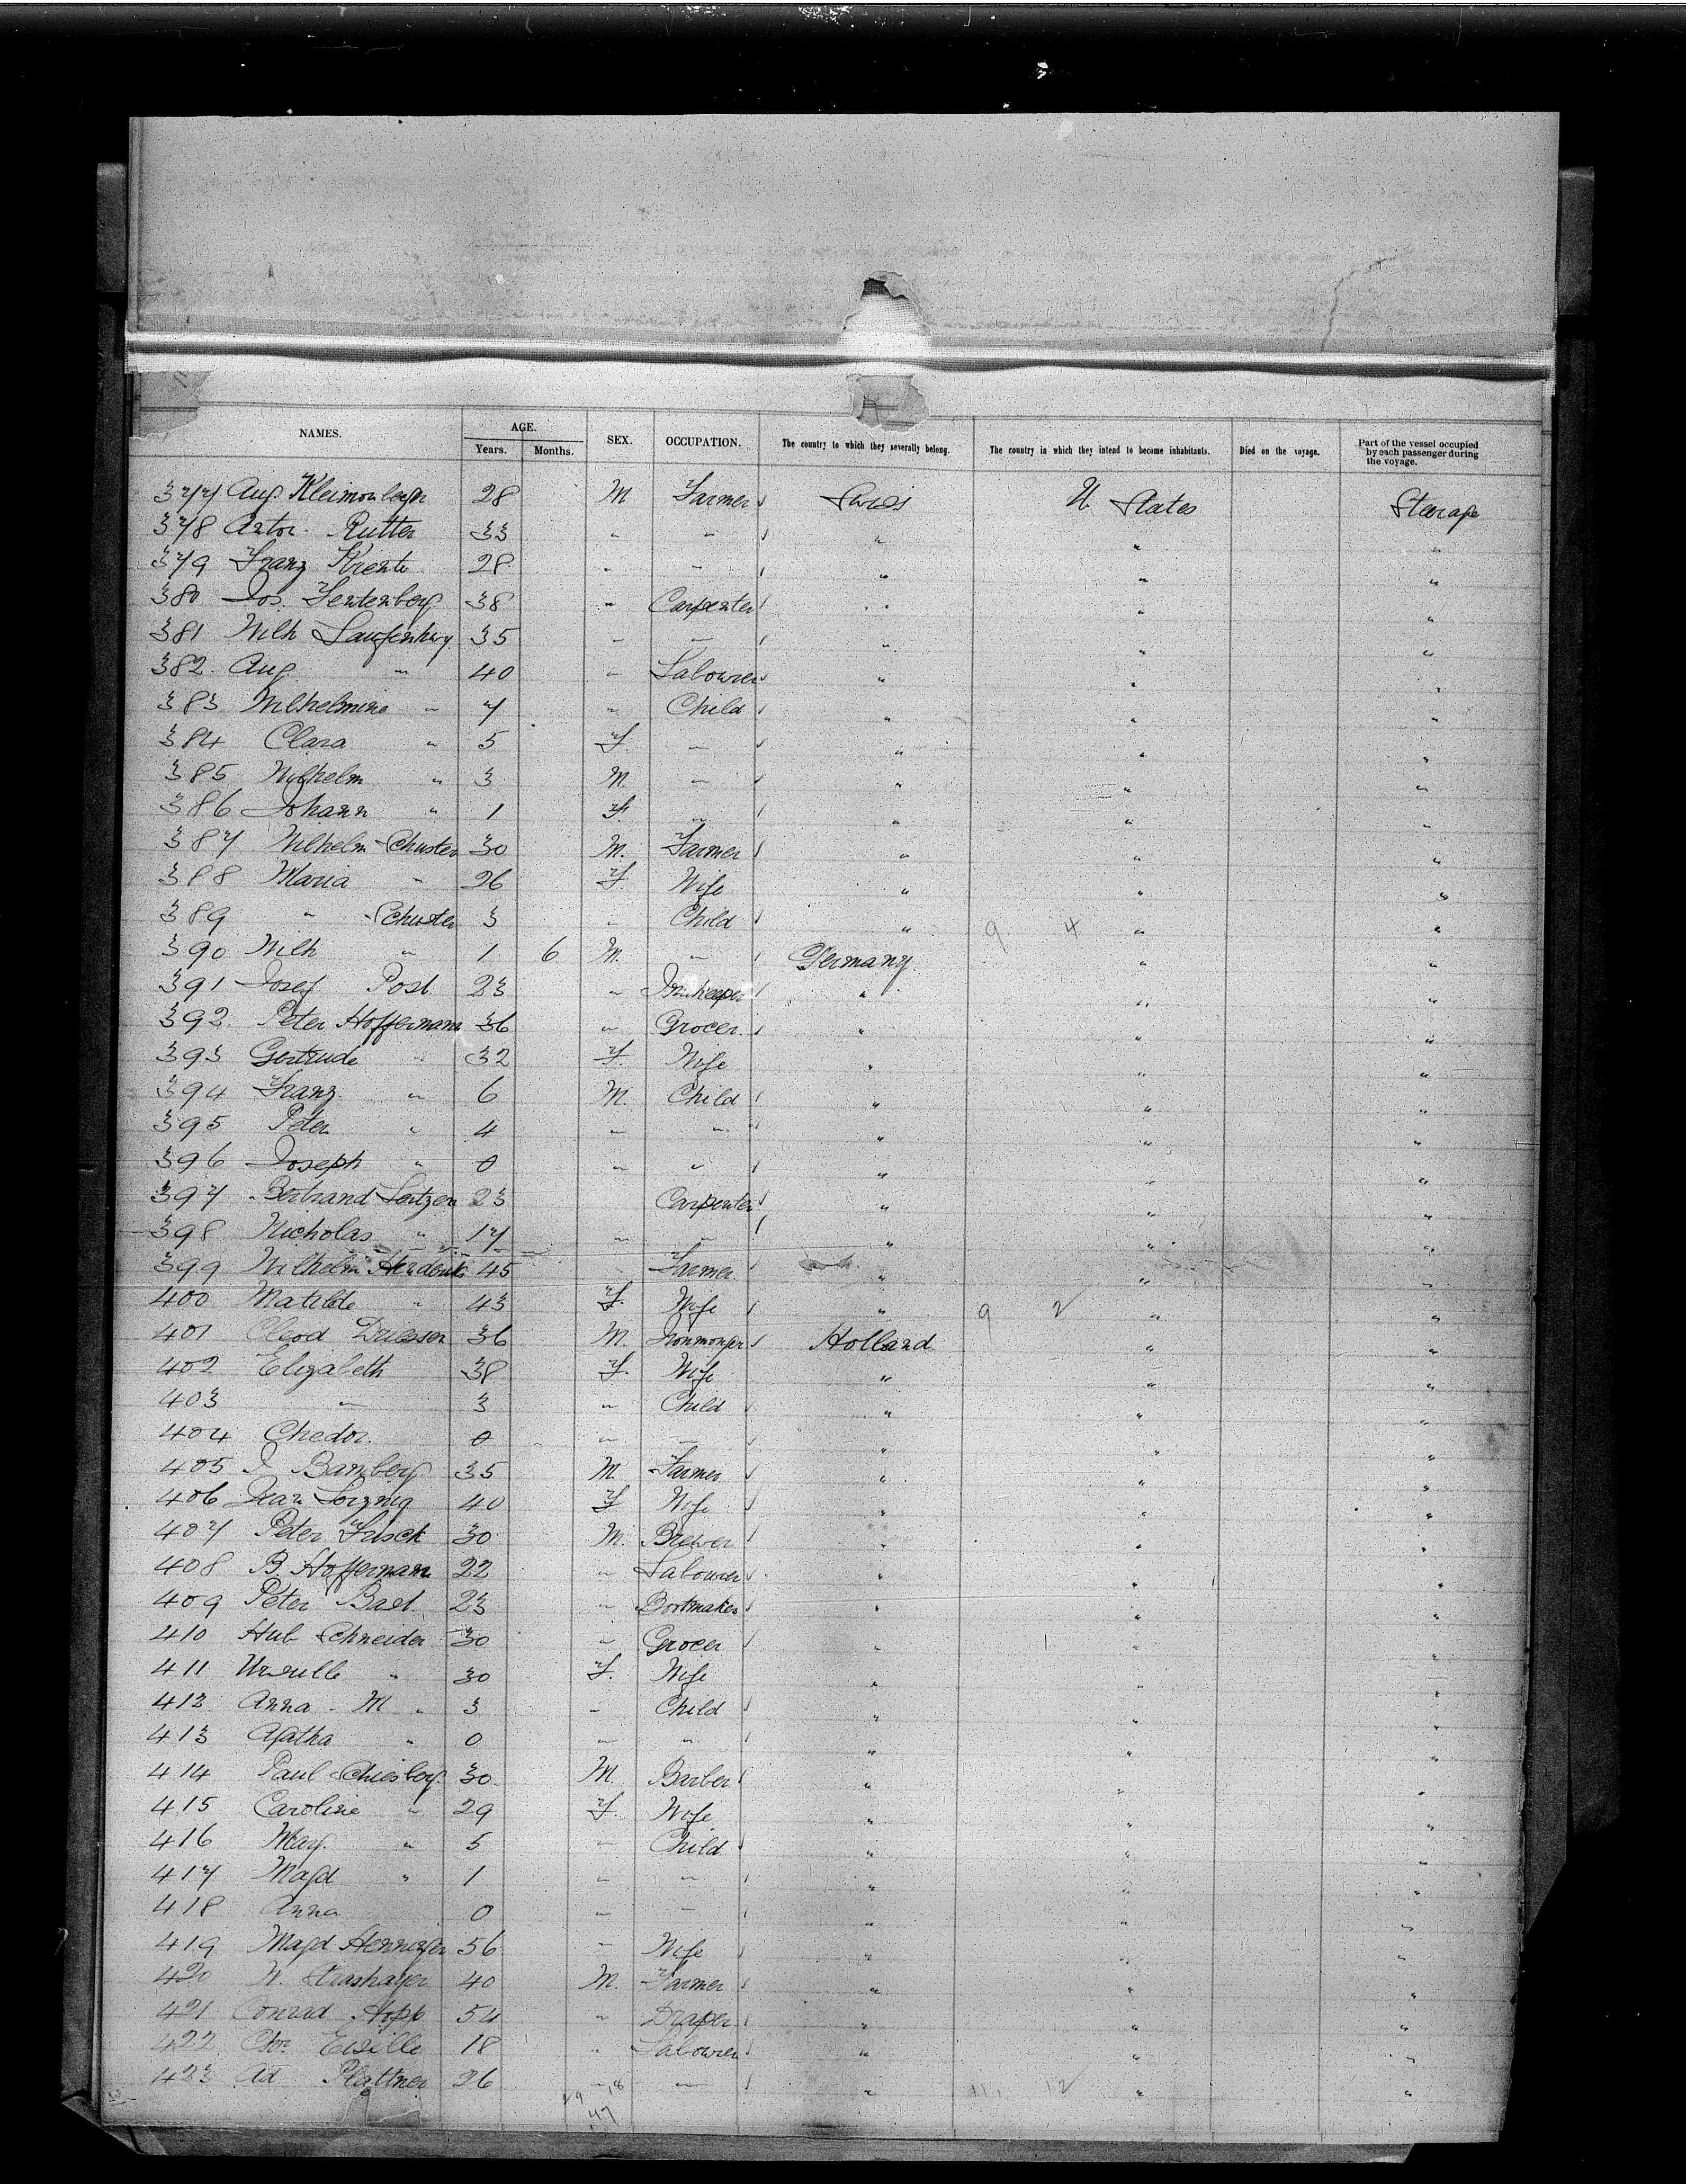 NAMES. AGE. SEX. OCCUPATION. The country to which they severally belong. The country in which they intend to become inhabitants. Died on the voyage. Part of the vessel occupied by each passenger during the voyage.
Years. Months.
377 Aug Kleimonberger 28 M Farmer Swiss U. States Steerage
378 Anton Rutter 33 " " " " "
379 Franz 28 " " " " "
380 Jos. Fentenberg 38 " Carpenter " " "
381 Wilh Laufenburg 35 " " " " "
382 Aug " 40 " Labourer " " "
383 Wilhelmine " 7 " Child " " "
384 Clara " 5 F. " " " "
385 Wilhelm " 3 M. " " " "
386 Johann " 1 F. " " " "
387 Wilhelm Schuster 30 M. Farmer " " "
388 Maria " 26 F Wife " " "
389 " Schuster 3 " Child " 9 4 " "
390 Wilh " 1 6 M. " Germany " "
391 Josef Post 23 " Innkeeper " " "
392 Peter Hoffermann 36 " Grocer " " "
393 Gertrude " 32 F. Wife " " "
394 Franz " 6 M. Child " " "
395 Peter " 4 " " " " "
396 Joseph " 0 " " " " "
397 Bertrand Lentzen 23 Carpenter " " "
398 Nicholas " 17 " " " " "
399 Wilhelm 45 Farmer " " "
400 Matilde " 43 F. Wife " 9 2 " "
401 Driessen 36 M. Ironmonger Holland " "
402 Elizabeth 38 F. Wife " " "
403 " 3 " Child " " "
404 Chedor 0 " " " " "
405 J Bamberg 35 M Farmer " " "
406 40 F Wife " " "
407 Peter Fusch 30 M. Brewer " " "
408 B. Hoffermann 22 " Labourer " " "
409 Peter Bast 23 " Bootmaker " " "
410 Hub Schneider 30 " Grocer " " "
411 Ursulle " 30 F. Wife " " "
412 Anna - M " 3 " Child " " "
413 Agatha " 0 " " " " "
414 Paul Schiesberg 30 M. Barber " " "
415 Caroline " 29 F. Wife " " "
416 Mary " 5 " Child " " "
417 Magd " 1 " " " " "
418 Anna 0 " " " " "
419 Magd Henninger 56 " Wife " " "
420 W. Strashager 40 M. Farmer " " "
421 Conrad Hipp 54 " Draper " " "
422 Chr. Eiselle 18 " Labourer " " "
423 Ad Plattner 26 " " " 11 12 " "
29 18
47